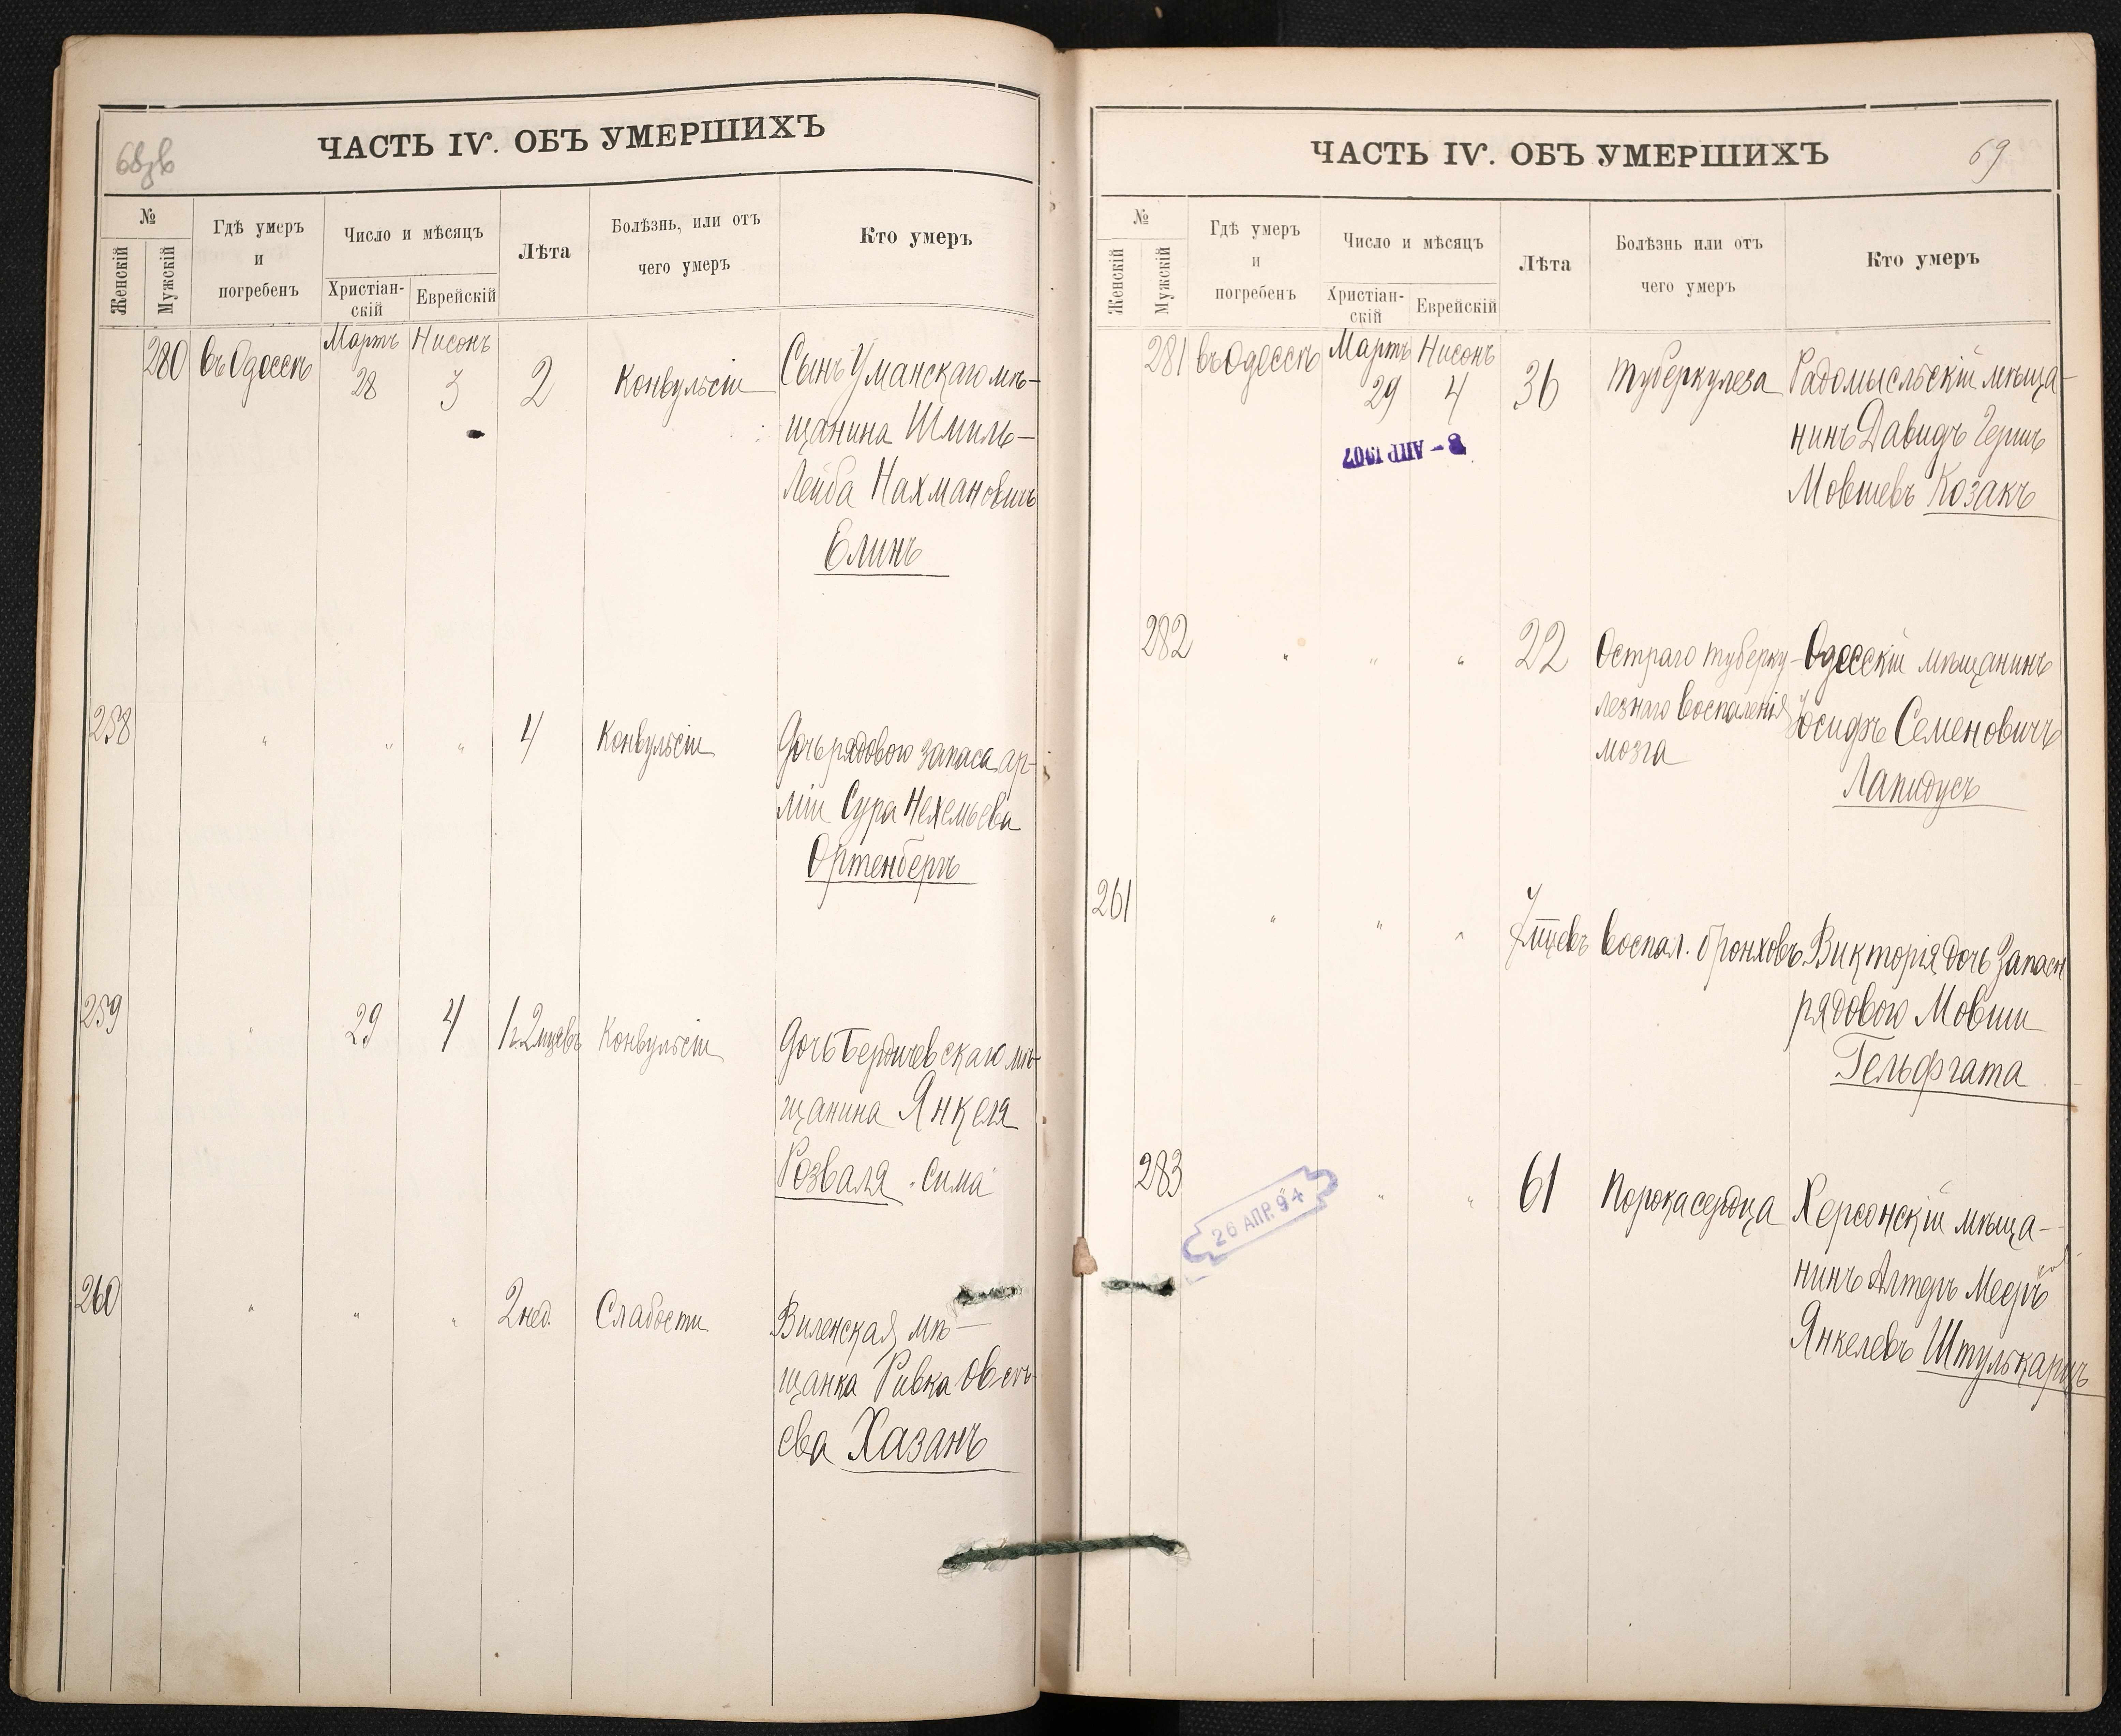 68
ЧАСТЬ IV. ОБЪ УМЕРШИХЪ
№
Женскій
Мужскій
Гдѣ умеръ
и
погребенъ
Число и мѣсяцъ
Христіан-
скій
Еврейскій
Лѣта
Болѣзнь, или отъ
чего умеръ
Кто умеръ
280 въ Одессѣ Мартъ 28 Нисонъ 3 2 Конвульсіи Сынъ Уманскаго мѣ-
щанина Шмиль-
Лейба Нахмановичъ
Елинъ
258 " " " 4 Конвульсіи Дочь рядового запаса ар-
міи Сура Нехемьева
Ортенбергъ
259 " 29 4 1 г. 2 мцевъ Конвульсіи Дочь Бердичевскаго мѣ-
щанина Янкеля
Розваля. Сима
260 " " " 2 нед. Слабости Виленская мѣ-
щанка Ривка Овсѣ-
ева Хазанъ
69
ЧАСТЬ IV. ОБЪ УМЕРШИХЪ
№
Женскій
Мужскій
Гдѣ умеръ
и
погребенъ
Число и мѣсяцъ
Христіан-
скій
Еврейскій
Лѣта
Болѣзнь или отъ
чего умеръ
Кто умеръ
281 въ Одессѣ Мартъ 29 Нисонъ 4 36 Туберкулеза Радомысльскій мѣща-
нинъ Давидъ Гершъ
Мовшевъ Козакъ
8 - АПР 1907
282 " " " 22 Остраго туберку- Одесскій мѣщанинъ
лезнаго воспаленія Іосифъ Семеновичъ
мозга Лапидусъ
261 " " " 7 мцевъ Воспал. бронховъ Викторія дочь Запасн
рядового Мовши
Гельфгата
283 " " " 61 Порока сердца Херсонскій мѣща-
нинъ Алтеръ Мееръ
Янкелевъ Штулькарцъ
26 АПР. 94